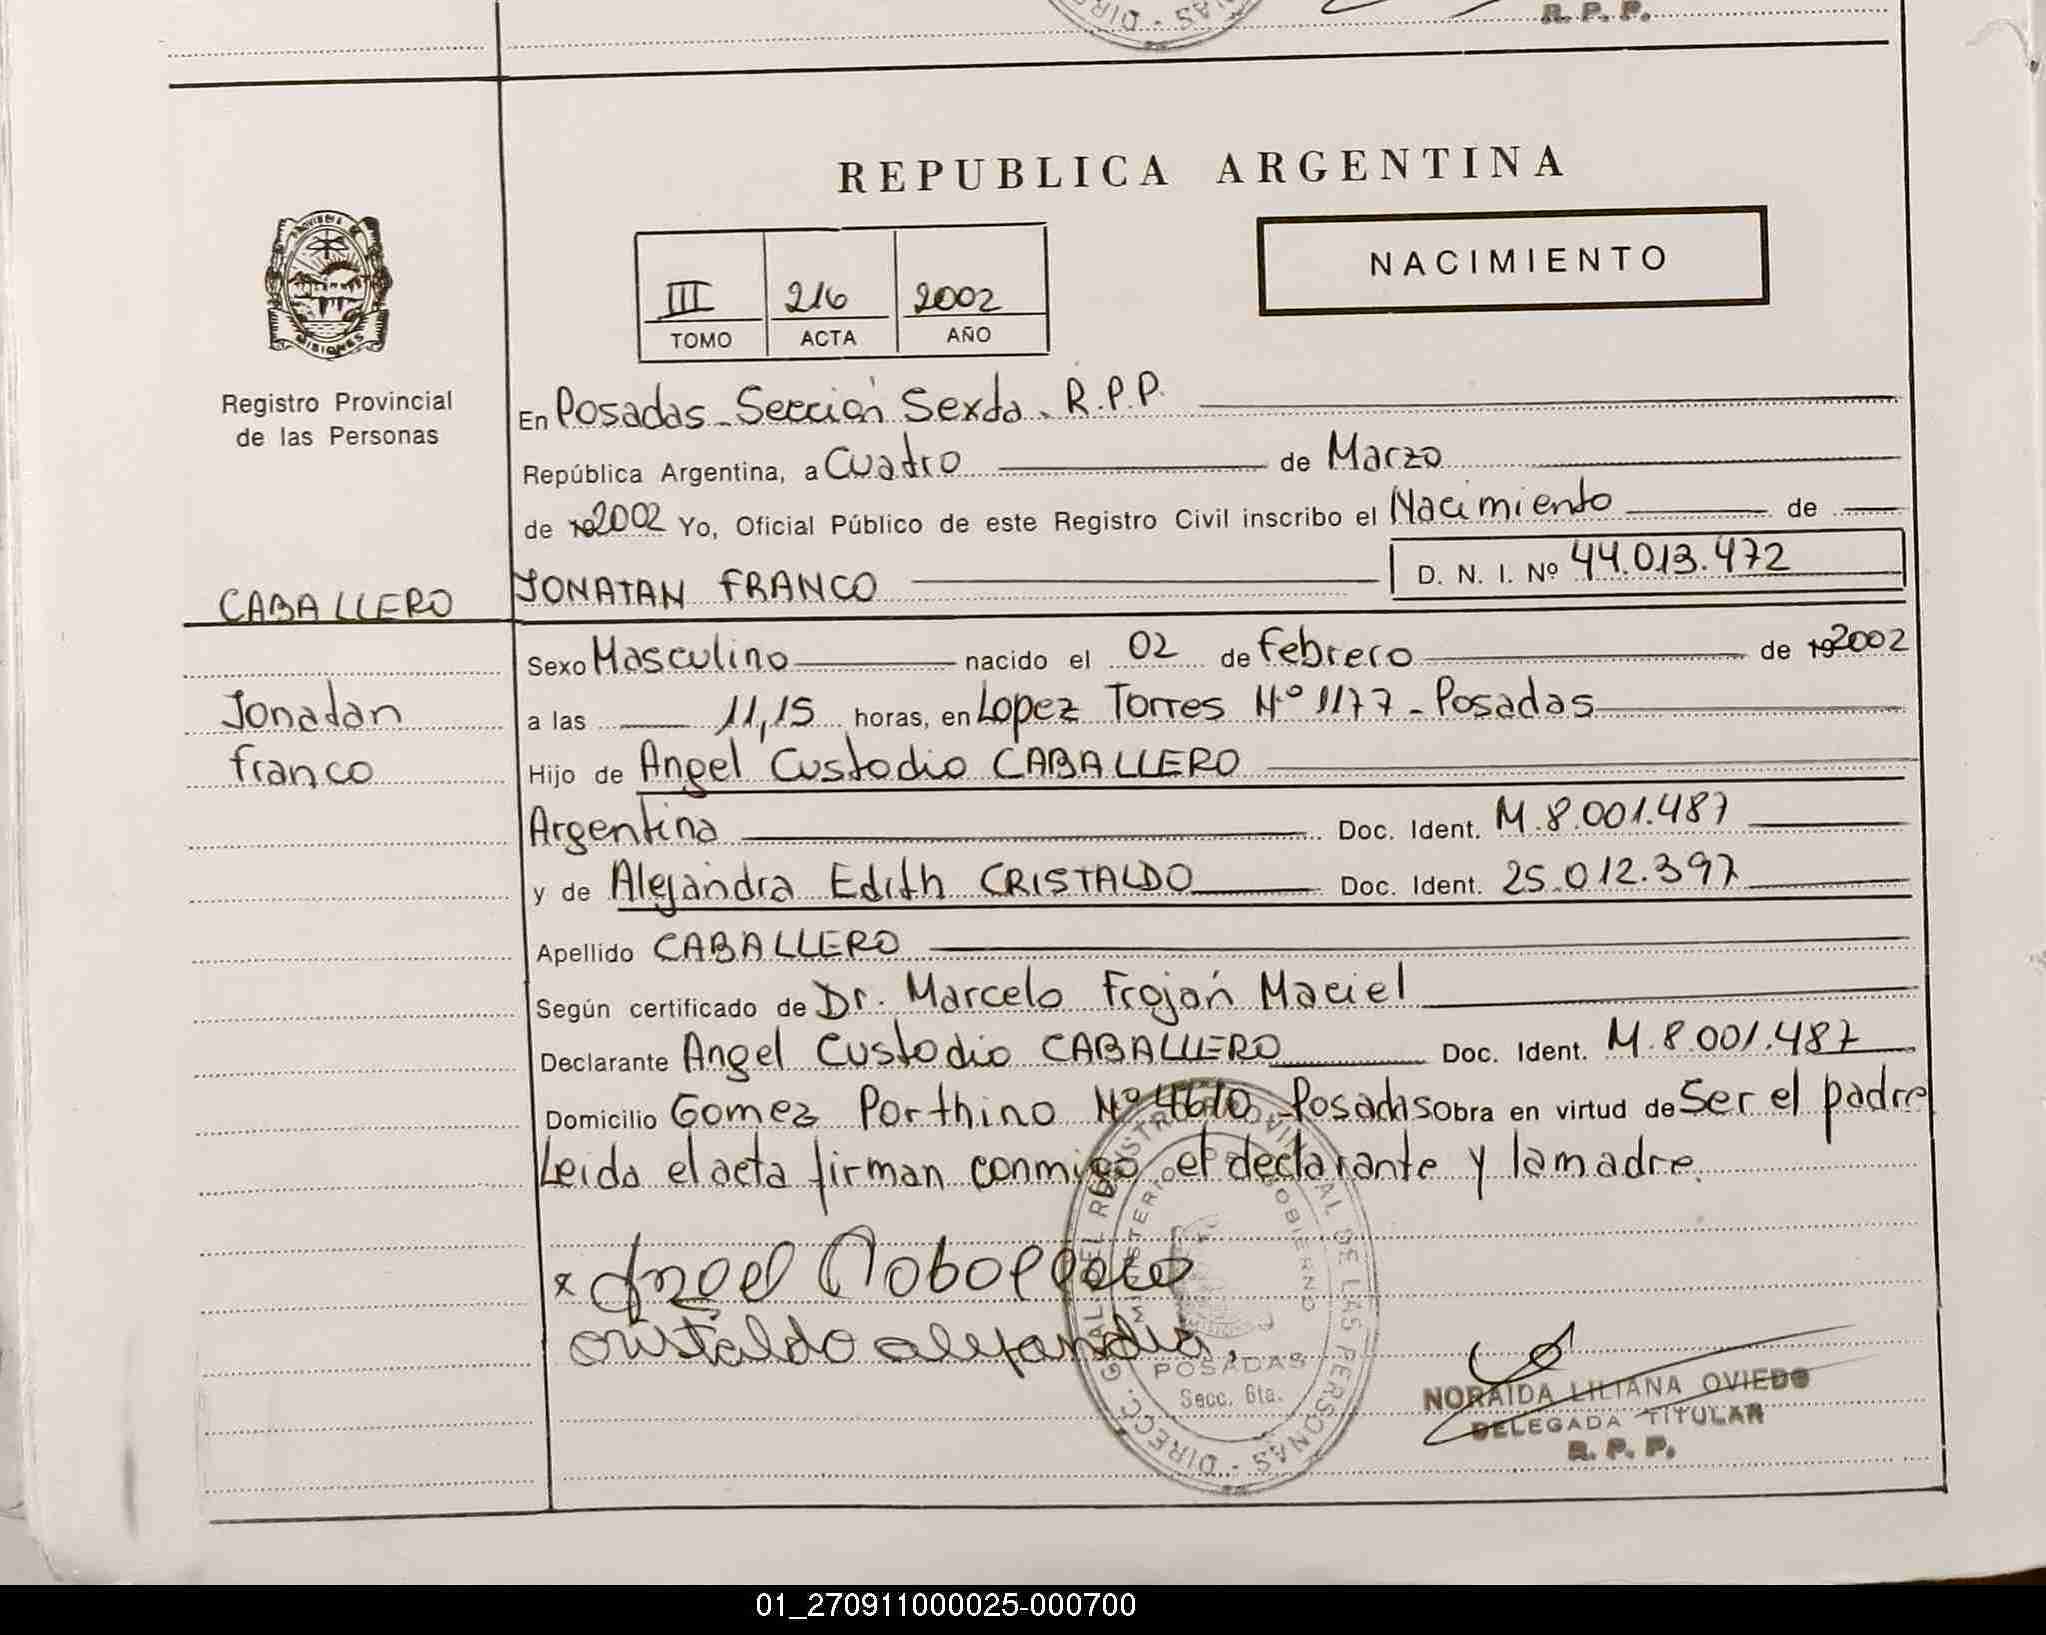 R. P. P.
REPUBLICA ARGENTINA
PROVINCIA DE
MISIONES
III 216 2002
TOMO ACTA AÑO
NACIMIENTO
Registro Provincial
de las Personas
En Posadas - Sección Sexta. R.P.P.
República Argentina, a Cuatro de Marzo
de 192002 Yo, Oficial Público de este Registro Civil inscribo el Nacimiento de
CABALLERO
JONATAN FRANCO D. N. I. Nº 44.013.472
Sexo Masculino nacido el 02 de febrero de 192002
Jonatan
franco
a las 11,15 horas, en Lopez Torres Nº 1177 - Posadas
Hijo de Angel Custodio CABALLERO
Argentina Doc. Ident. M.8.001.487
y de Alejandra Edith CRISTALDO Doc. Ident. 25.012.397
Apellido CABALLERO
Según certificado de Dr. Marcelo Froján Maciel
Declarante Angel Custodio CABALLERO Doc. Ident. M.8.001.487
Domicilio Gomez Porthino Nº 4610 - Posadas Obra en virtud de Ser el padre
Leida el acta firman conmigo el declarante y la madre.
x Angel Caballero
cristaldo alejandra.
DIRECC. GRAL. DEL REGISTRO PROVINCIAL DE LAS PERSONAS
MINISTERIO DE GOBIERNO
POSADAS
Secc. 6ta.
NORAIDA LILIANA OVIEDO
DELEGADA TITULAR
R. P. P.
01_270911000025-000700